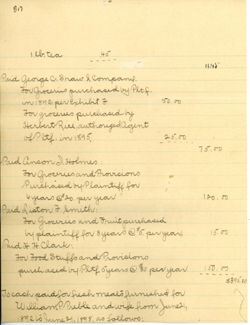 1 lb. tea .45
Paid George C. Shaw & Company
For Groceries purchased by Pltf.
in 1892 per Exhibit F 50.00
For groceries purchased by
Herbert authorized Agent
of Pltf. in 1895. 25.00
75.00
Paid Anson D. Holmes:
For Groceries and Provisions
Purchased by Plaintiff for
years @ 20 per year 120.00
Paid F. Smith:
For Groceries and Fruit purchased
by plaintiff for 3 years @ 5 per year. 15.00
Paid H. H. Clark:
For Food Stuffs and Provisions
purchased by Pltf. 5 years @ 30 per year 150.00
To cash paid for fresh meats furnished for
William P. and wife from June 1,
to June 21, as follows: